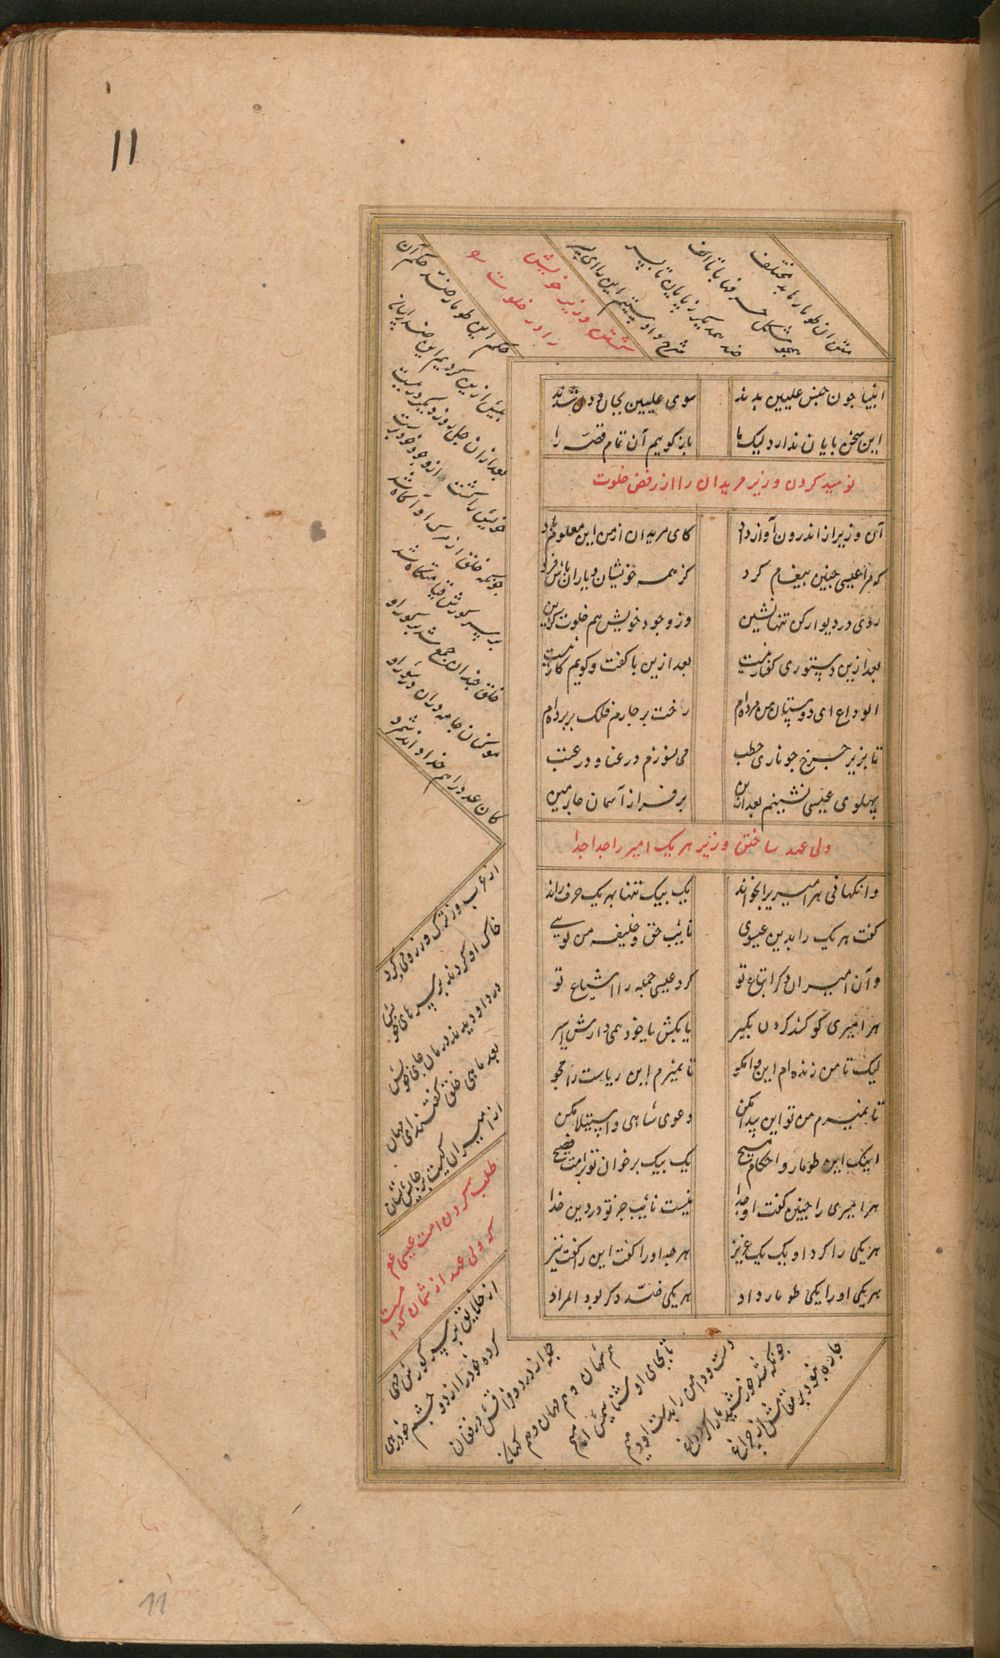 11
انبیا چون جنس علیین بدند سوی علیین بجان و دل شدند
این سخن پایان ندارد لیک ما بازگوییم آن تمام قصه را
نومید کردن وزیر مریدان را از رفض خلوت
آن وزیر از اندرون آواز داد کای مریدان از من این معلوم باد
که مرا عیسی چنین پیغام کرد کز همه خویشان و یاران باش فرد
روی در دیوار کن تنها نشین وز وجود خویش هم خلوت گزین
بعد ازین دستوری گفتار نیست بعد ازین با گفت و گویم کار نیست
الوداع ای دوستان من مرده‌ام رخت بر چارم فلک بر برده‌ام
تا بزیر چرخ چو ناری حطب می نسوزم در عنا و در عطب
پهلوی عیسی نشینم بعد ازین بر فراز آسمان چارمین
ولی عهد ساختن وزیر هر یک امیر را جدا جدا
وانگهانی هر امیری را بخواند یک بیک تنها بهر یک حرف راند
گفت هر یک را بدین عیسوی نائب حق و خلیفه من توی
و آن امیران دگر اتباع تو کرد عیسی جمله را اشیاع تو
هر امیری کو کند گردن بگیر یا بکش یا خود همی دارش اسیر
لیک تا من زنده‌ام این وا مگو تا نمیرم این ریاست را مجو
تا نمیرم من تو این پیدا مکن دعوی شاهی و استیلا مکن
اینک این طومار و احکام مسیح یک بیک برخوان تو بر امت فصیح
هر امیری را چنین گفت او جدا نیست نائب جز تو در دین خدا
هر یکی را کرد او یک یک عزیز هر چه او را گفت این را گفت نیز
هر یکی او را یکی طومار داد هر یکی ضد دگر بود المراد
متن آن طومارها بد مختلف
همچو شکل حرفها یا تا الف
ضد همدیگر ز پایان تا بسر
شرح دادستیم این را ای پسر
کشتن وزیر خویش
را در خلوت
حکم این طومار ضد حکم آن
پیش ازین کردیم این ضد را بیان
بعد از آن چل روز دیگر در ببست
خویش را کشت از وجود خود برست
چونکه خلق از مرگ او آگاه شد
بر سر گورش قیامتگاه شد
خلق چندان جمع شد بر گور او
موکنان جامه دران در شور او
کان عدد را هم خدا داند شمرد
از عرب وز ترک و از رومی و کرد
خاک او کردند بر سرهای خویش
درد او دیدند درمان جای خویش
بعد ماهی خلق گفتند ای مهان
از امیران کیست بر جایش نشان
طلب کردن امت عیسی عم
که ولی عهد از شمان کدام است
از خلایق بر سر گورش مهی
کرده خون را از دو چشم خود رهی
جمله از درد فراقش در فغان
هم شهان و هم مهان و هم کهان
تا بجای او شناسیمش امام
دست و دامن را بدست او دهیم
چونکه شد خورشید و ما را کرد داغ
چاره نبود بر مقامش از چراغ
11